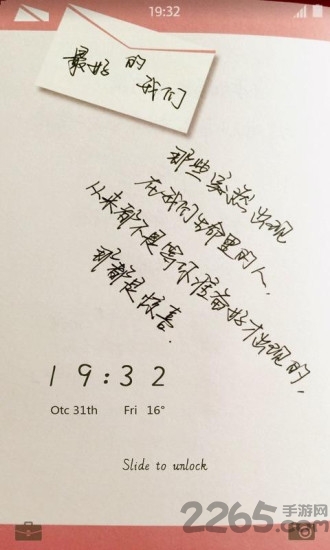 19:32
最好的
我们
那些突然出现
在我们生命里的人.
从来都不是等你准备好才出现的.
那都是惊喜.
19:32
Otc 31th Fri 16°
Slide to unlock
2265.com
手游网